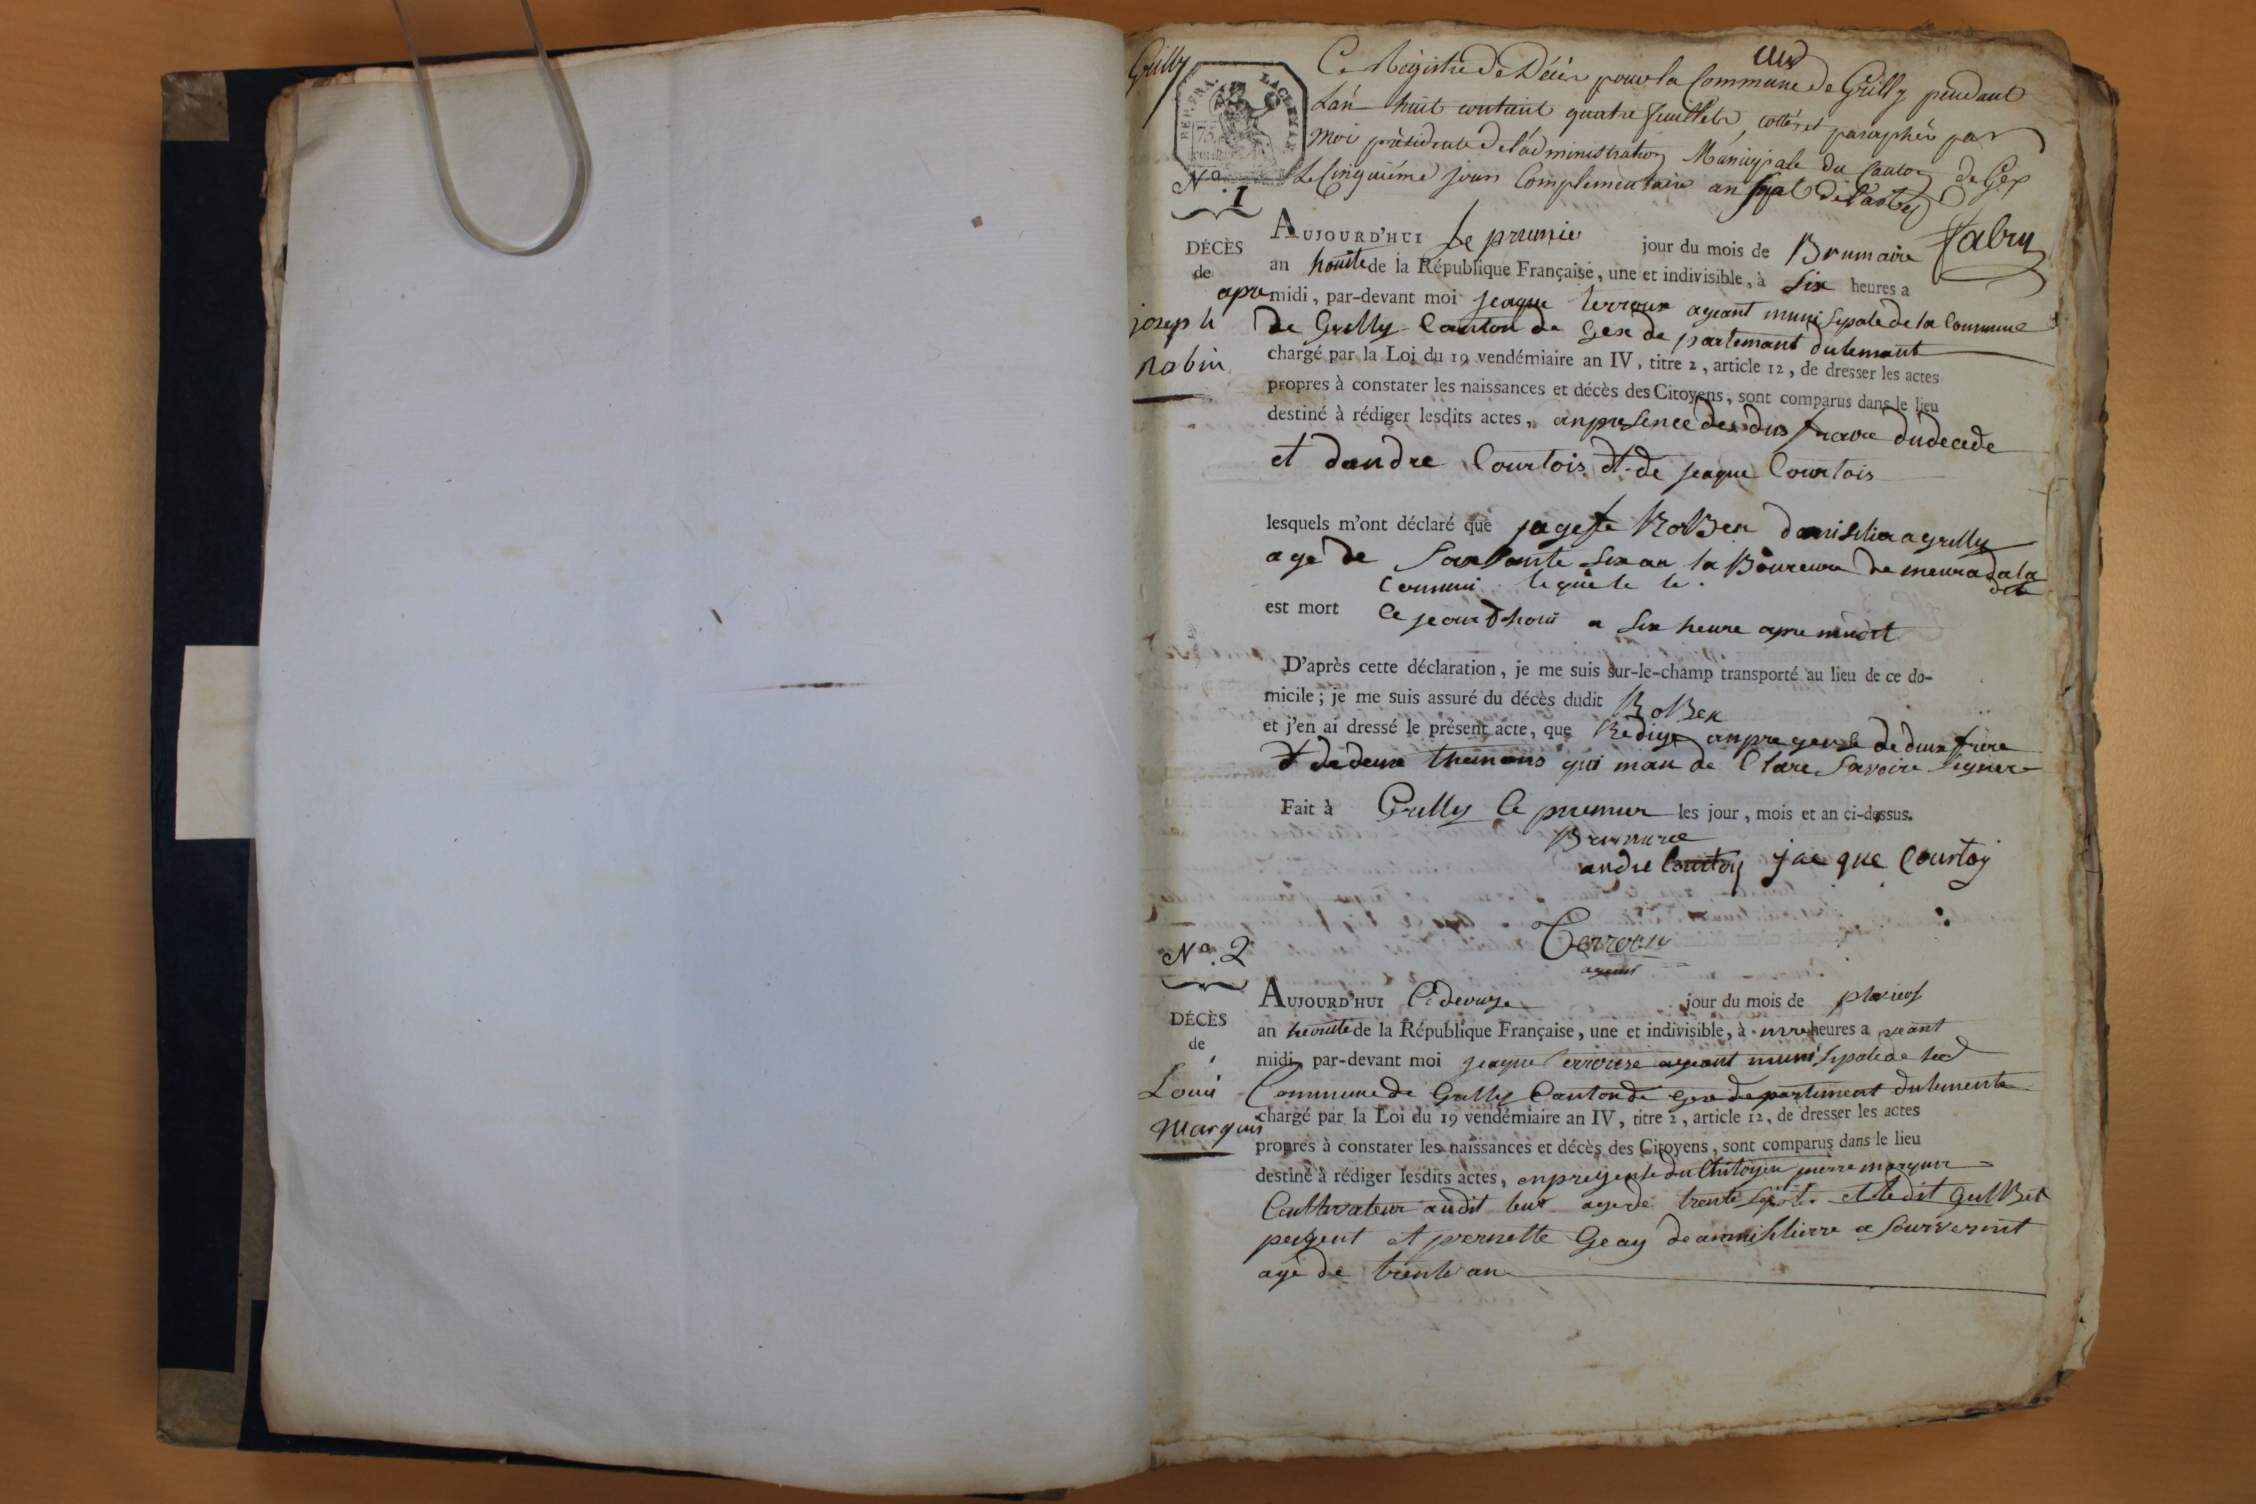 Grilly
Ce Régistre de Décès pour la Commune de Grilly pendant
Lan huit contant quatre feuillets, cottés et paraphés par
Moi président de l'administration Municipale du Canton de Gex
Le Cinquième jour Complementaire an sept de
Fabry
REP. FRA.
75
N.º 1
DÉCÈS
de
joseph
Robin
AUJOURD'HUI Le premie jour du mois de Brumaire
an houite de la République Française, une et indivisible, à six heures a
apre midi, par-devant moi jeaque terroux ageant munisypale de la Commune
de Grilly Canton de Gex departemant dulemant
chargé par la Loi du 19 vendémiaire an IV, titre 2, article 12, de dresser les actes
propres à constater les naissances et décès des Citoyens, sont comparus dans le lieu
destiné à rédiger lesdits actes, anpresence des dus freare dudecede
et dandre Courtois et de jeaque Courtois
lesquels m'ont déclaré que RoBen domisilier a grilly
age de six an la Boureure
Commui le
est mort Ce jeourdhoui a six heure apre midit
D'après cette déclaration, je me suis sur-le-champ transporté au lieu de ce do-
micile; je me suis assuré du décès dudit RoBen
et j'en ai dressé le présent acte, que Redige anpregense de deux frere
et de deux themons qui man de Clare savoire signer
Fait à Grilly le premier les jour, mois et an ci-dessus.
Brumere
andre Courtoy jacque Courtoy
Terroux
ageant
N.º 2
DÉCÈS
de
Louis
Marquis
AUJOURD'HUI le douze jour du mois de
an heuite de la République Française, une et indivisible, à heures a
midi, par-devant moi jeaque terroux ageant munisypale de
Commune de Grilly Canton de Gex departement dulement
chargé par la Loi du 19 vendémiaire an IV, titre 2, article 12, de dresser les actes
propres à constater les naissances et décès des Citoyens, sont comparus dans le lieu
destiné à rédiger lesdits actes, anpregense du Chitoyen pierre marquis
Coultivateur audit leux agede trente
et pernette Geay a
age de trente an